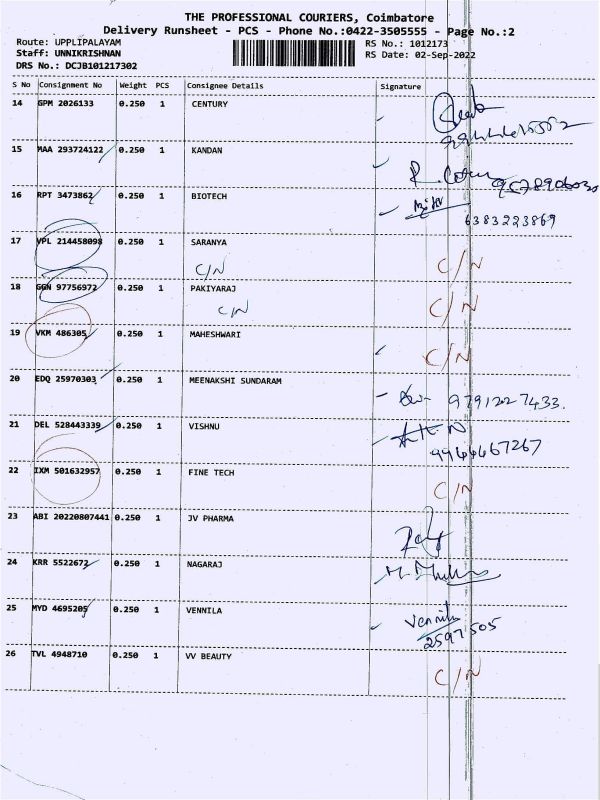 THE PROFESSIONAL COURIERS, Coimbatore
Delivery Runsheet - PCS - Phone No.:0422-3505555 - Page No.:2
Route: UPPLIPALAYAM RS No.: 1012173
Staff: UNNIKRISHNAN RS Date: 02-Sep-2022
DRS No.: DCJB101217302
S No Consignment No Weight PCS Consignee Details Signature
14 GPM 2026133 0.250 1 CENTURY
15 MAA 293724122 0.250 1 KANDAN
16 RPT 3473862 0.250 1 BIOTECH
6383223869
17 VPL 214458098 0.250 1 SARANYA
C/N C/N
18 GGN 97756972 0.250 1 PAKIYARAJ
C/N C/N
19 VKM 486305 0.250 1 MAHESHWARI
C/N
20 EDQ 25970303 0.250 1 MEENAKSHI SUNDARAM
9791227433.
21 DEL 528443339 0.250 1 VISHNU
9964467267
22 IXM 501632957 0.250 1 FINE TECH
C/N
23 ABI 20220807441 0.250 1 JV PHARMA
24 KRR 5522672 0.250 1 NAGARAJ
25 MYD 4695205 0.250 1 VENNILA
Vennila
2597505
26 TVL 4948710 0.250 1 VV BEAUTY
C/N